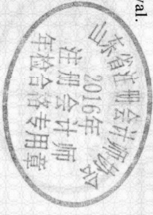 val.
山东省注册会计师协会
2016年
注册会计师
年检合格专用章